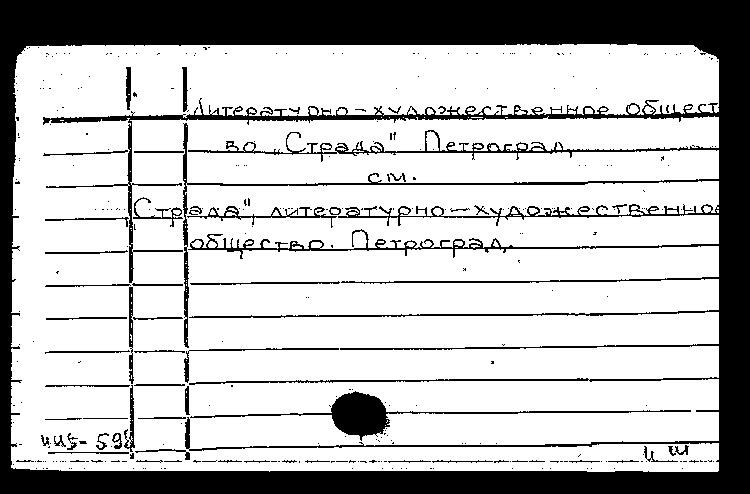 Литературно-художественное общест
во „Страда" Петроград,
см.
"Страда", литературно-художественное
общество. Петроград.